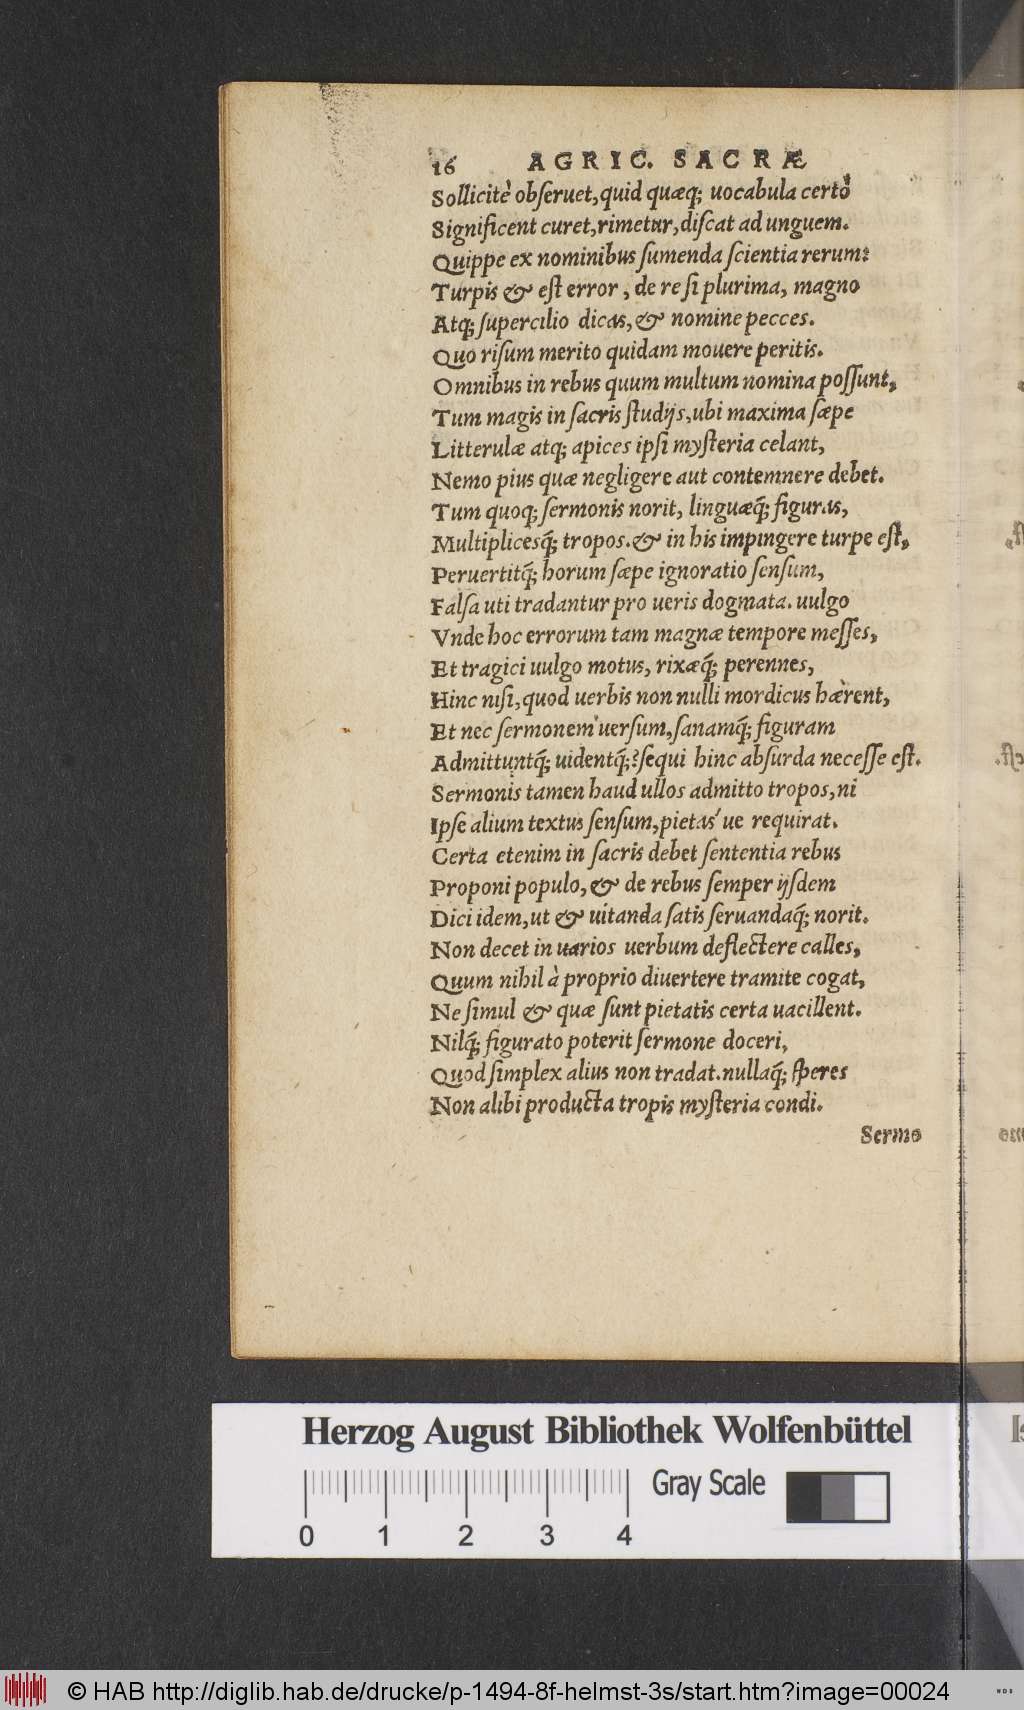 16 AGRIC. SACRÆ
Sollicitè obſeruet, quid quæq; uocabula certò
Significent curet, rimetur, diſcat ad unguem.
Quippe ex nominibus ſumenda ſcientia rerum:
Turpis & eſt error, de re ſi plurima, magno
Atq; ſupercilio dicas, & nomine pecces.
Quo riſum merito quidam mouere peritis.
Omnibus in rebus quum multum nomina poſſunt,
Tum magis in ſacris ſtudijs, ubi maxima ſæpe
Litterulæ atq; apices ipſi myſteria celant,
Nemo pius quæ negligere aut contemnere debet.
Tum quoq; ſermonis norit, linguæq́; figuras,
Multiplicesq́; tropos. & in his impingere turpe eſt,
Peruertitq́; horum ſæpe ignoratio ſenſum,
Falſa uti tradantur pro ueris dogmata. uulgo
Vnde hoc errorum tam magnæ tempore meſſes,
Et tragici uulgo motus, rixæq́; perennes,
Hinc niſi, quod uerbis non nulli mordicus hærent,
Et nec ſermonem uerſum, ſanamq́; figuram
Admittuntq́; uidentq́;? ſequi hinc abſurda neceſſe eſt.
Sermonis tamen haud ullos admitto tropos, ni
Ipſe alium textus ſenſum, pietas ́ue requirat.
Certa etenim in ſacris debet ſententia rebus
Proponi populo, & de rebus ſemper ijſdem
Dici idem, ut & uitanda ſatis ſeruandaq́; norit.
Non decet in uarios uerbum deflectere calles,
Quum nihil à proprio diuertere tramite cogat,
Ne ſimul & quæ ſunt pietatis certa uacillent.
Nilq́; figurato poterit ſermone doceri,
Quod ſimplex alius non tradat. nullaq́; ſperes
Non alibi producta tropis myſteria condi.
Sermo
Herzog August Bibliothek Wolfenbüttel
Gray Scale
0 1 2 3 4
© HAB http://diglib.hab.de/drucke/p-1494-8f-helmst-3s/start.htm?image=00024